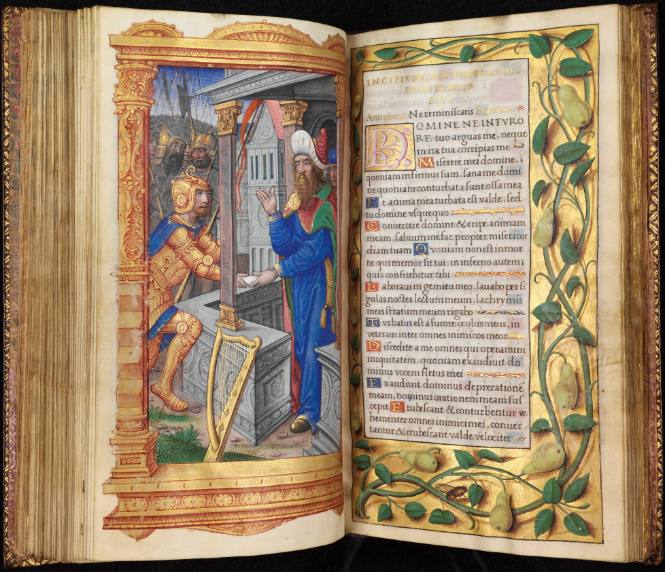 Ne reminiscaris
DOMINE NE IN FVRO
RE tuo arguas me, neque
in ira tua corripias me.
Miserere mei domine,
quoniam infirmus sum, sana me domi
ne quoniam conturbata sunt ossa mea
Et anima mea turbata est valde, sed
tu domine vsquequo
Conuertere domine & eripe animam
meam, saluum me fac propter misericor
diam tuam Quoniam non est in mor
te qui memor sit tui: in inferno autem
quis confitebitur tibi
Laboraui in gemitu meo, lauabo per si
gulas noctes lectum meum, lachrymis
meis stratum meum rigabo
Turbatus est a furore oculus meus, in
veteraui inter omnes inimicos meos
Discedite a me omnes qui operamini
iniquitatem, quoniam exaudiuit do
minus vocem fletus mei
Exaudiuit dominus deprecationē
meam, dominus orationem meam sus
cepit Erubescant & conturbentur ve
hementer omnes inimici mei, conuer
tantur & erubescant valde velociter